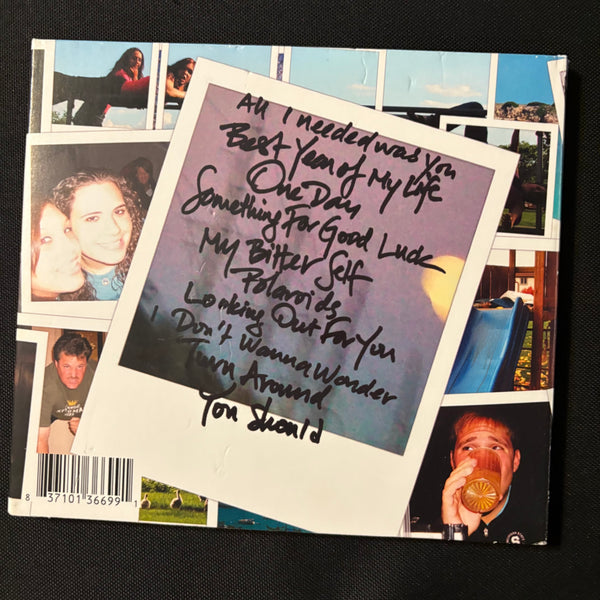 All I needed was You
Best Year of My Life
One Day
Something For Good Luck
My Bitter Self
Polaroids
Looking Out For You
I Don't Wanna Wonder
Turn Around
You Should
8 37101 36699 1